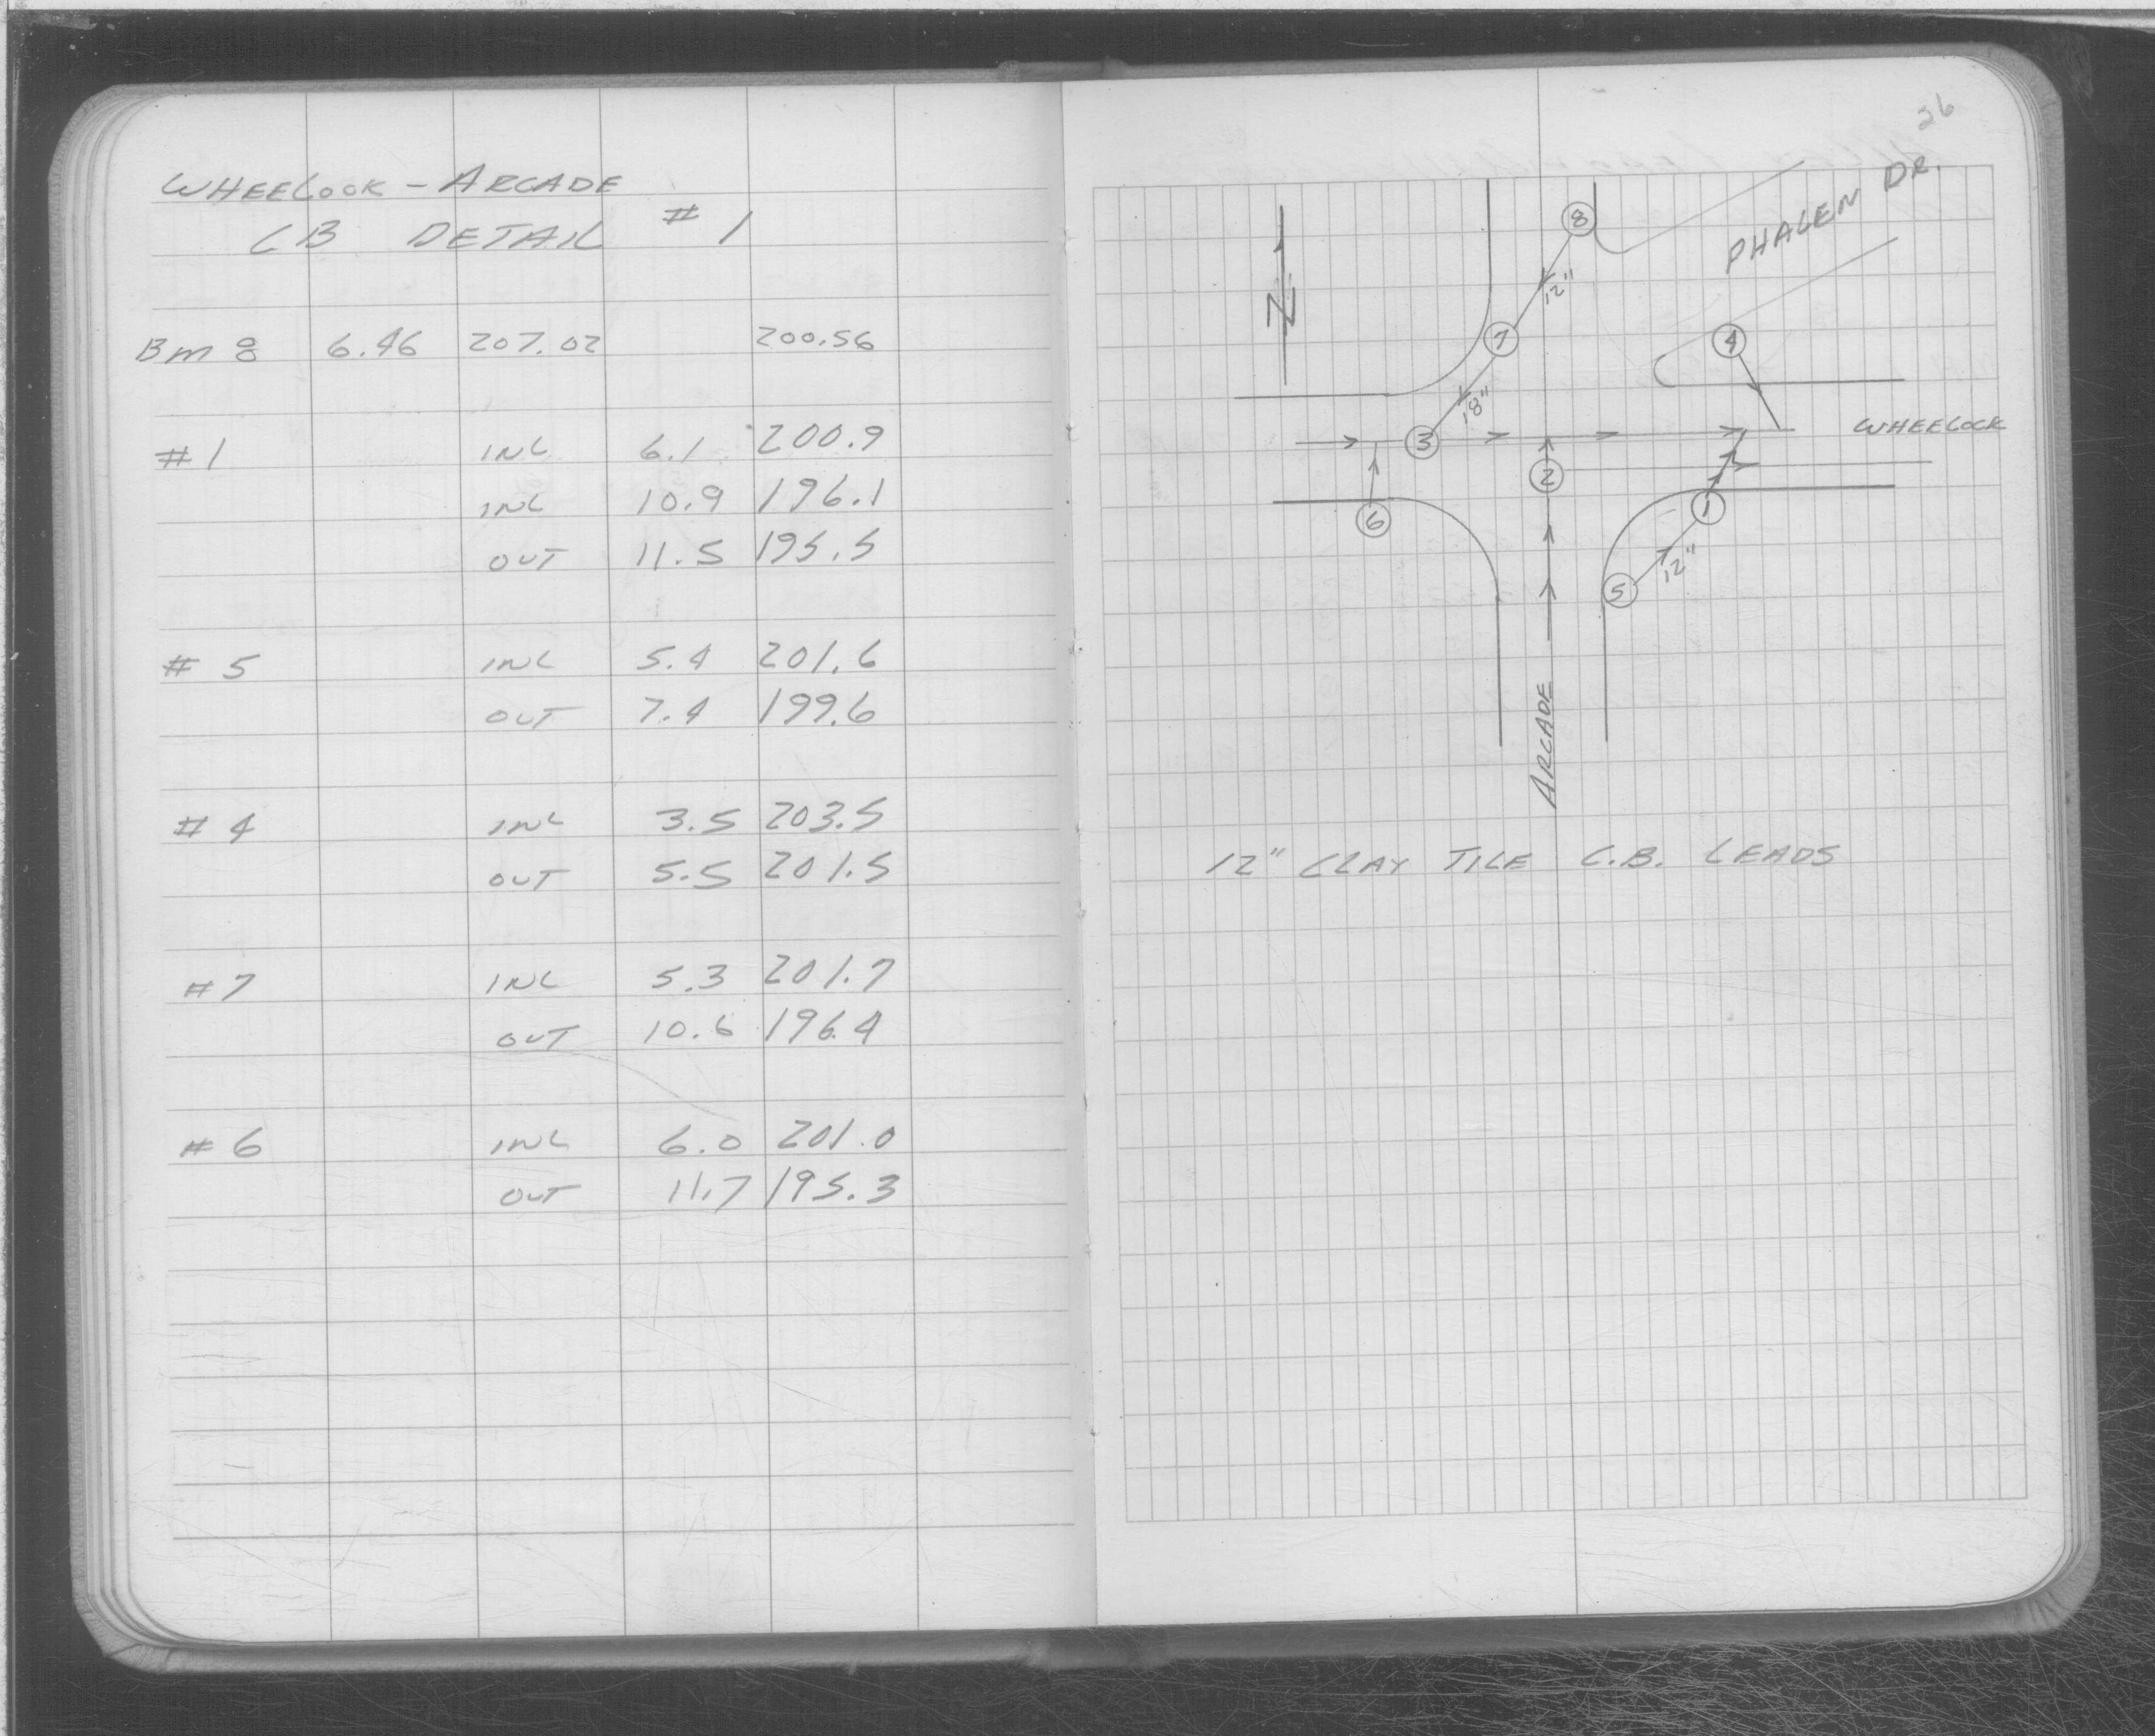 WHEELOCK - ARCADE
CB DETAIL #1
BM 8 6.46 207.02 200.56
#1 INL 6.1 200.9
INL 10.9 196.1
OUT 11.5 195.5
#5 INL 5.4 201.6
OUT 7.4 199.6
#4 INL 3.5 203.5
OUT 5.5 201.5
#7 INL 5.3 201.7
OUT 10.6 196.4
#6 INL 6.0 201.0
OUT 11.7 195.3
26
PHALEN DR.
N
8
12"
7
4
18"
3
WHEELOCK
2
1
6
12"
5
ARCADE
12" CLAY TILE C.B. LEADS